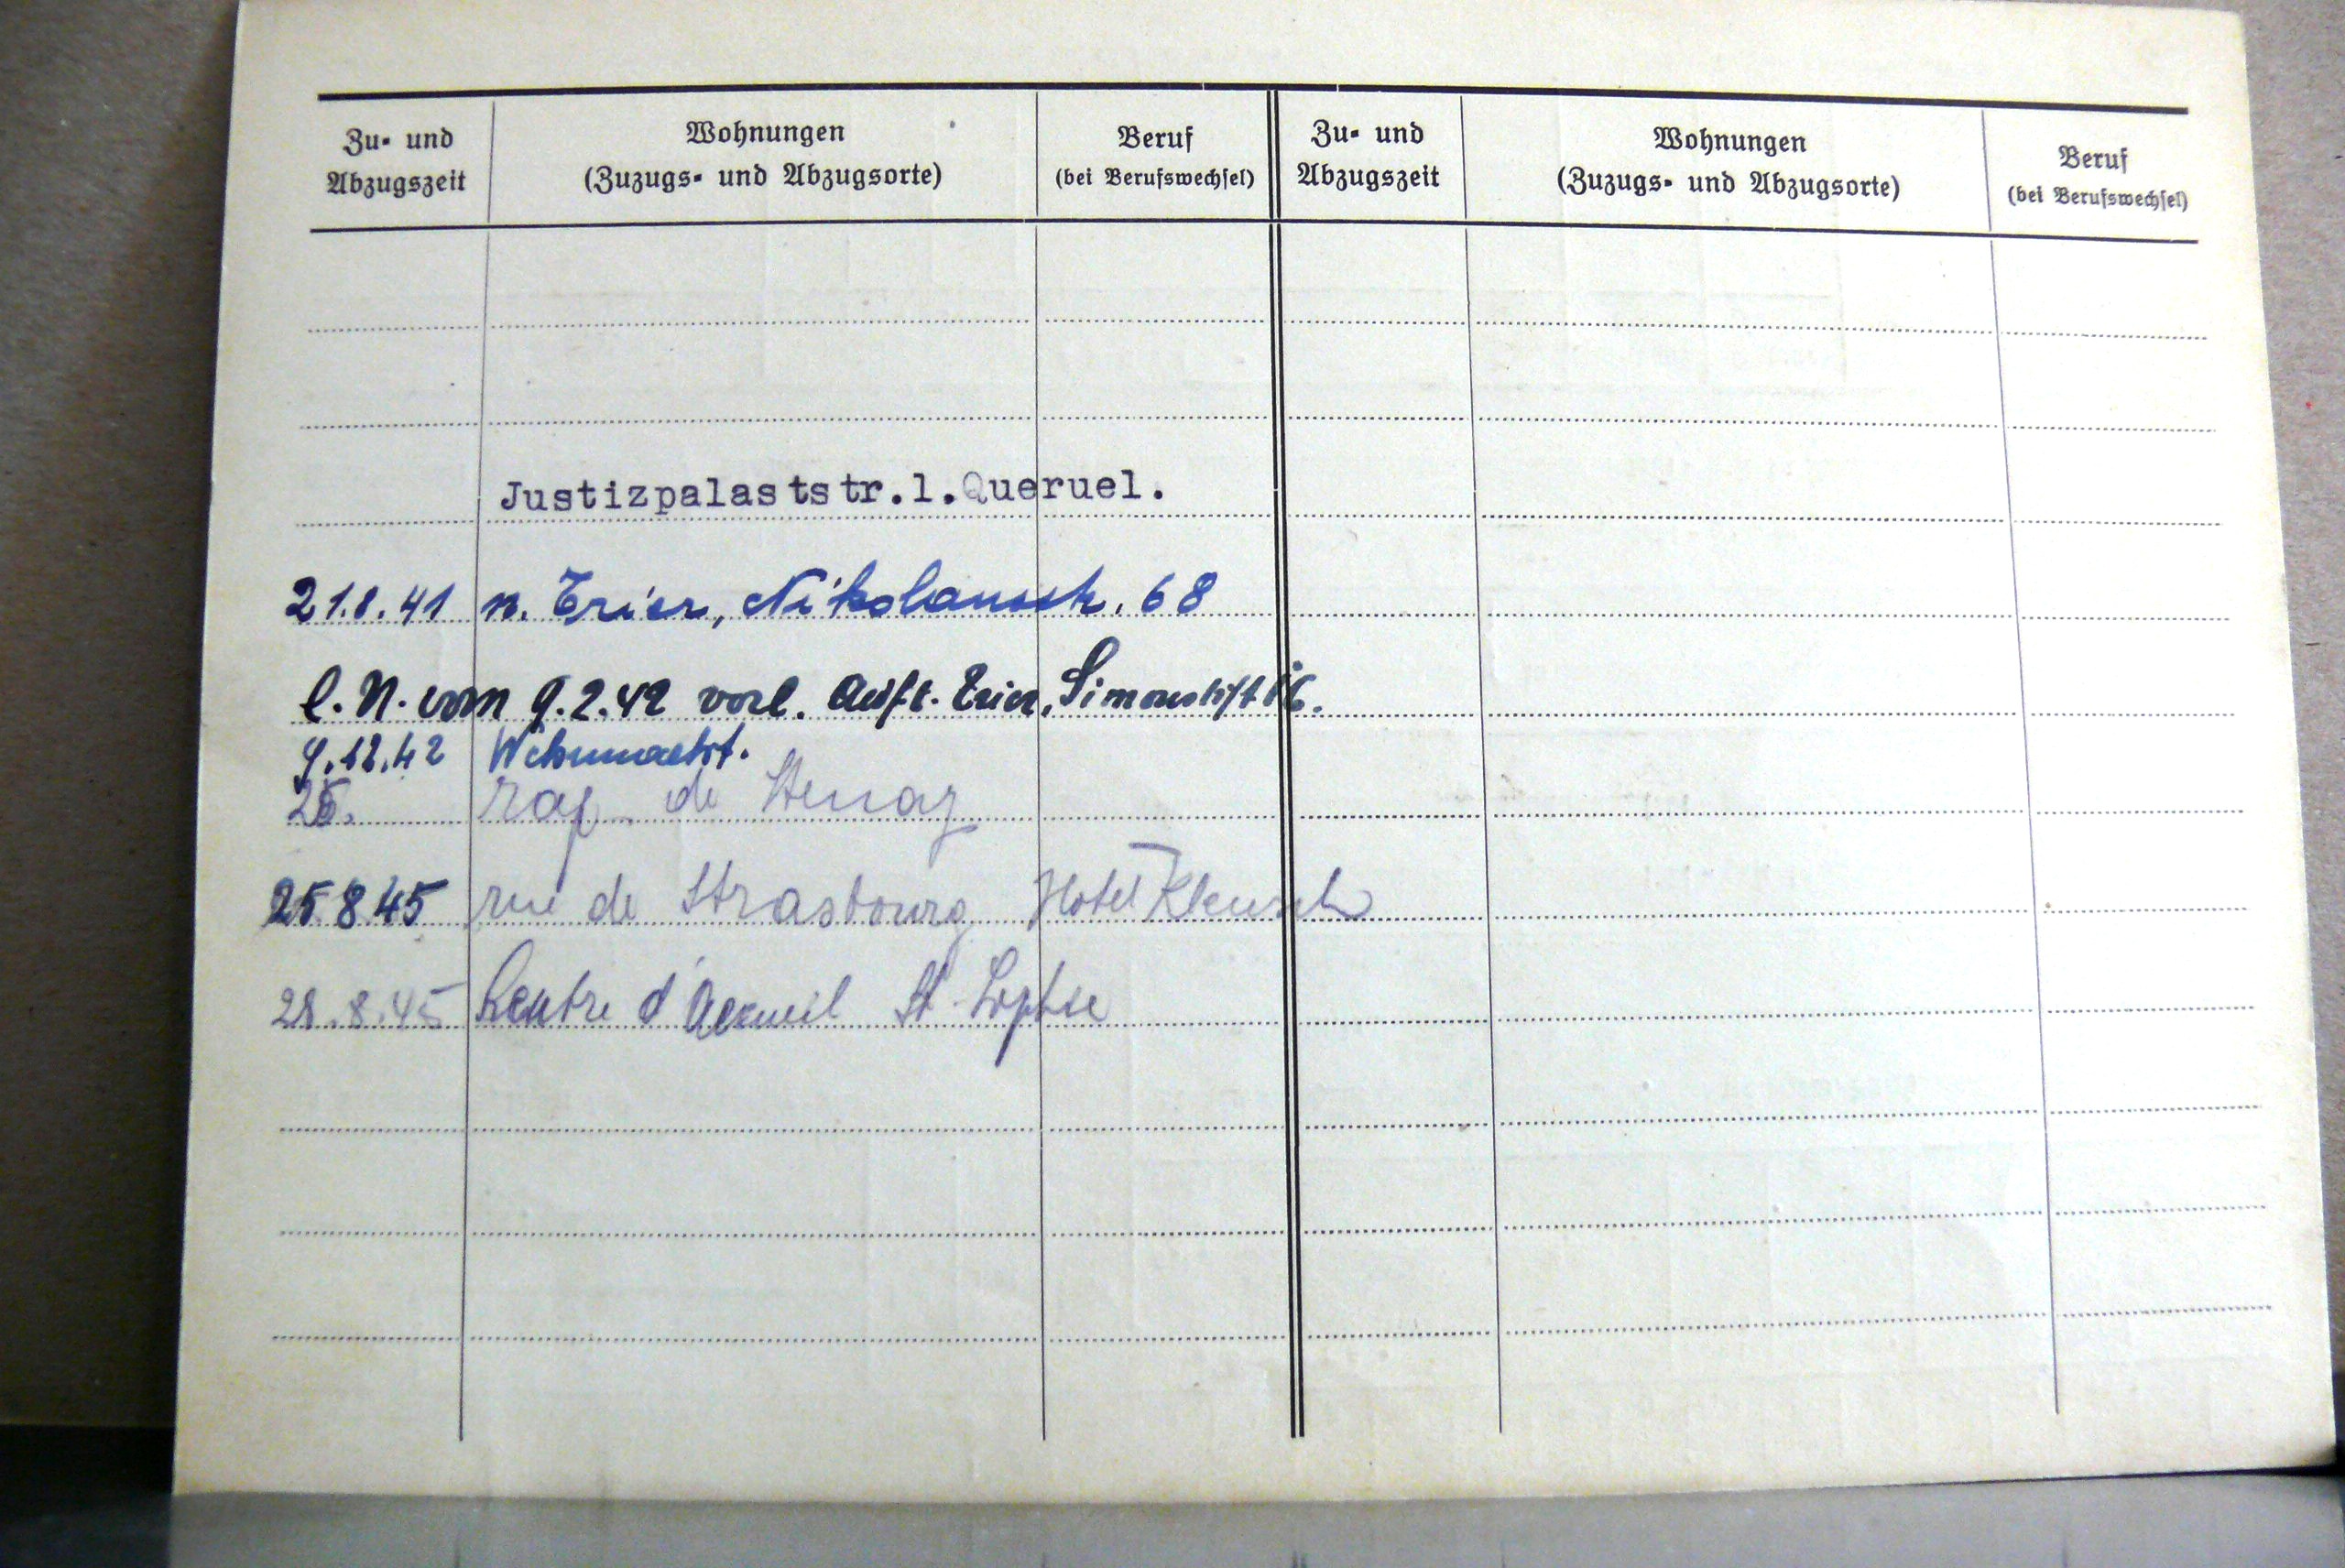 Zu- und Abzugszeit
Wohnungen
(Zuzugs- und Abzugsorte)
Beruf
(bei Berufswechsel)
Zu- und Abzugszeit
Wohnungen
(Zuzugs- und Abzugsorte)
Beruf
(bei Berufswechsel)
Justizpalaststr.1.Queruel.
21.8.41 n. Trier, Nikolausstr. 68
l. N. vom 9.2.42 vorl. Auft. Trier, Simeonstift 16.
9.12.42 Wehrmacht.
25. rap. de Stenay
25 8 45 rue de Strasbourg Hotel Kleusch
28.8.45 Centre d'Accueil St